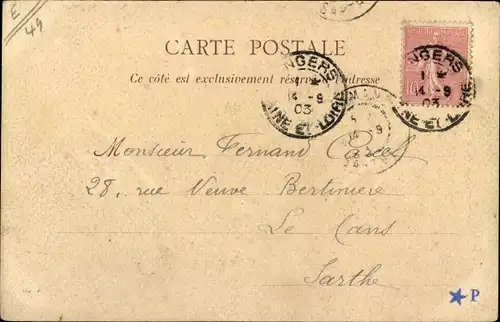 E
49
CARTE POSTALE
Ce côté est exclusivement réservé à l'adresse
ANGERS
14 -9
03
MAINE-ET-LOIRE
ANGERS
14 -9
03
MAINE-ET-LOIRE
10
Monsieur Fernand
28, rue Neuve Bertinière
Le Mans
Sarthe
P